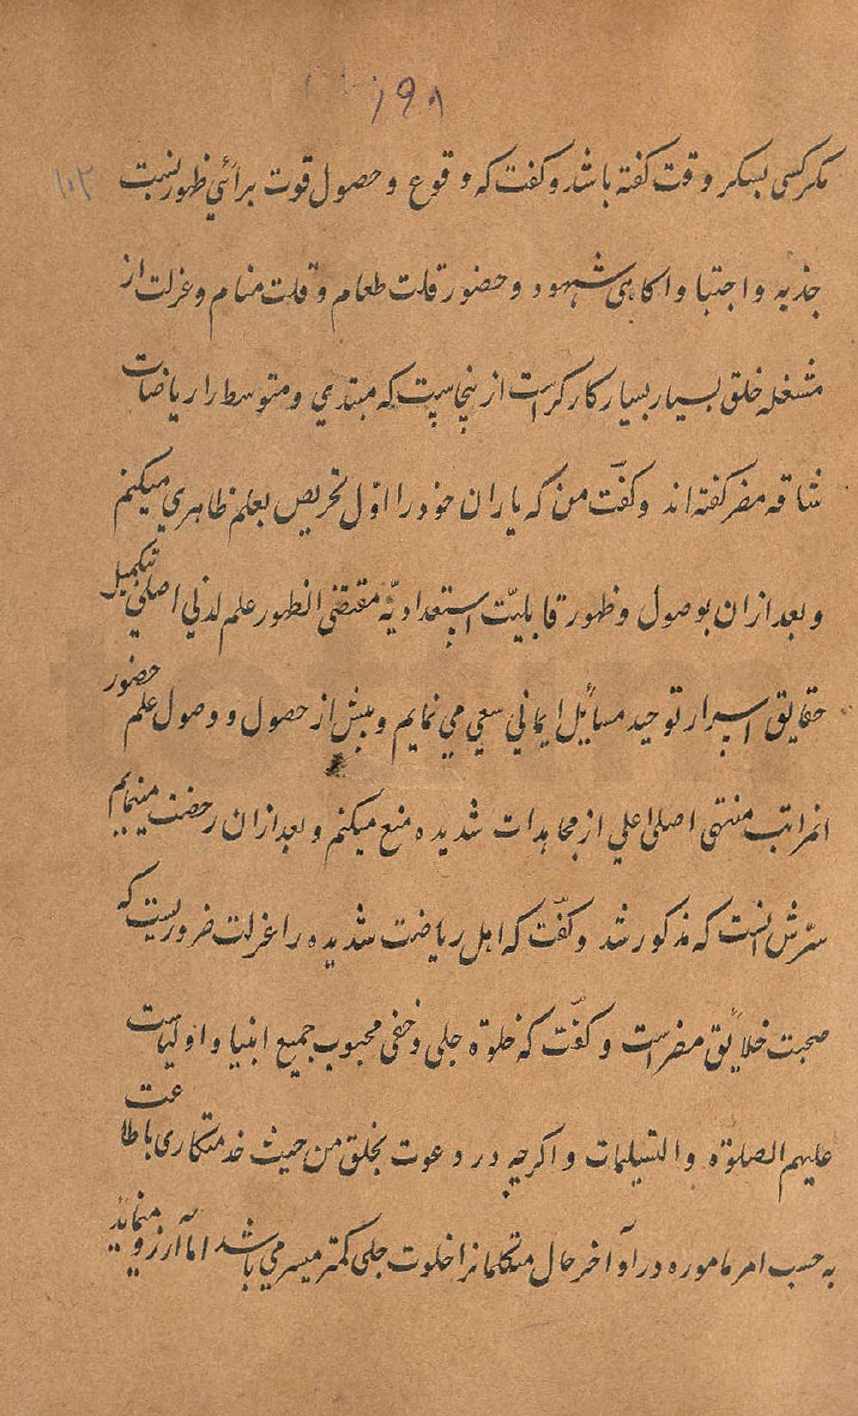 ۱۹۸
۱۰۲
مکر کسی بسکر وقت کفته باشد و کفت که وقوع و حصول قوت برائي ظهور نسبت
جذبه و اجتبا و اکاهی شهود و حضور قلت طعام و قلت منام و عزلت از
مشغله خلق بسیار بسیار کارکر است از ینجاست که مبتدي و متوسط را ریاضات
شاقه مضر کفته اند و کفت من که یاران خود را اول تحریص بعلم ظاهري میکنم
و بعد ازان بوصول و ظهور قابلیت استعدادیه مقتضی الظهور علم لدني اصلي تکمیل
حقایق اسرار توحید مسائل ایماني سعي مي نمایم و پیش از حصول و وصول علم حضور
مراتب منتهی اصلی اعلي از مجاهدات شدیده منع میکنم و بعد ازان رخصت مینمایم
سرش اینست که مذکور شد و کفت که اهل ریاضت شدیده را عزلت ضروریست که
صحبت خلایق مضر است و کفت که خلوة جلی و خفی محبوب جمیع انبیا و اولیاست
علیهم الصلوة والتسلیمات و اکرچه در دعوت بخلق من حیث خدمتکاری باطاعت
به حسب امر ماموره در آخر حال متکلمانرا خلوت جلی کمتر میسر مي باشد اما آرزوی مینماید